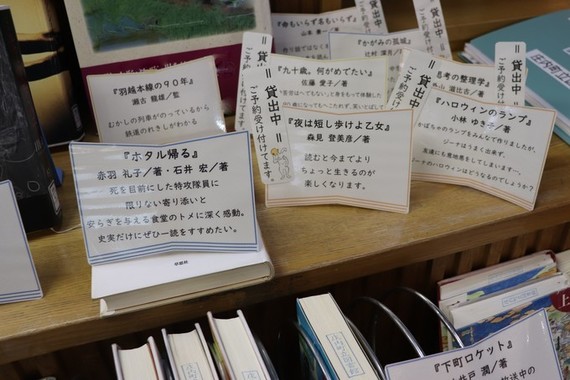 『羽越本線の90年』
瀬古 龍雄/監
むかしの列車がのっているから
鉄道のれきしがわかる
『ホタル帰る』
赤羽 礼子/著・石井 宏/著
死を目前にした特攻隊員に
限りない寄り添いと
安らぎを与える食堂のトメに深く感動。
史実だけにぜひ一読をすすめたい。
=貸出中=
ご予約受け付けてます。
『九十歳。何がめでたい』
佐藤 愛子/著
『夜は短し歩けよ乙女』
森見 登美彦/著
読むと今までより
ちょっと生きるのが
楽しくなります。
『かがみの孤城』
辻村 深月/
貸出中
ご予約
=貸出中=
ご予約受け付けてます。
思考の整理学』
外山 滋比古/著
貸出中
『ハロウィンのランプ』
小林 ゆき子/著
かぼちゃのランプをみんなで作りましたが、
ジーナはうまく出来ず、
友達にも意地悪をしてしまいます…
ジーナのハロウィンはどうなるのでしょうか?
『下町ロケット』
井戸 潤/著
放送中の